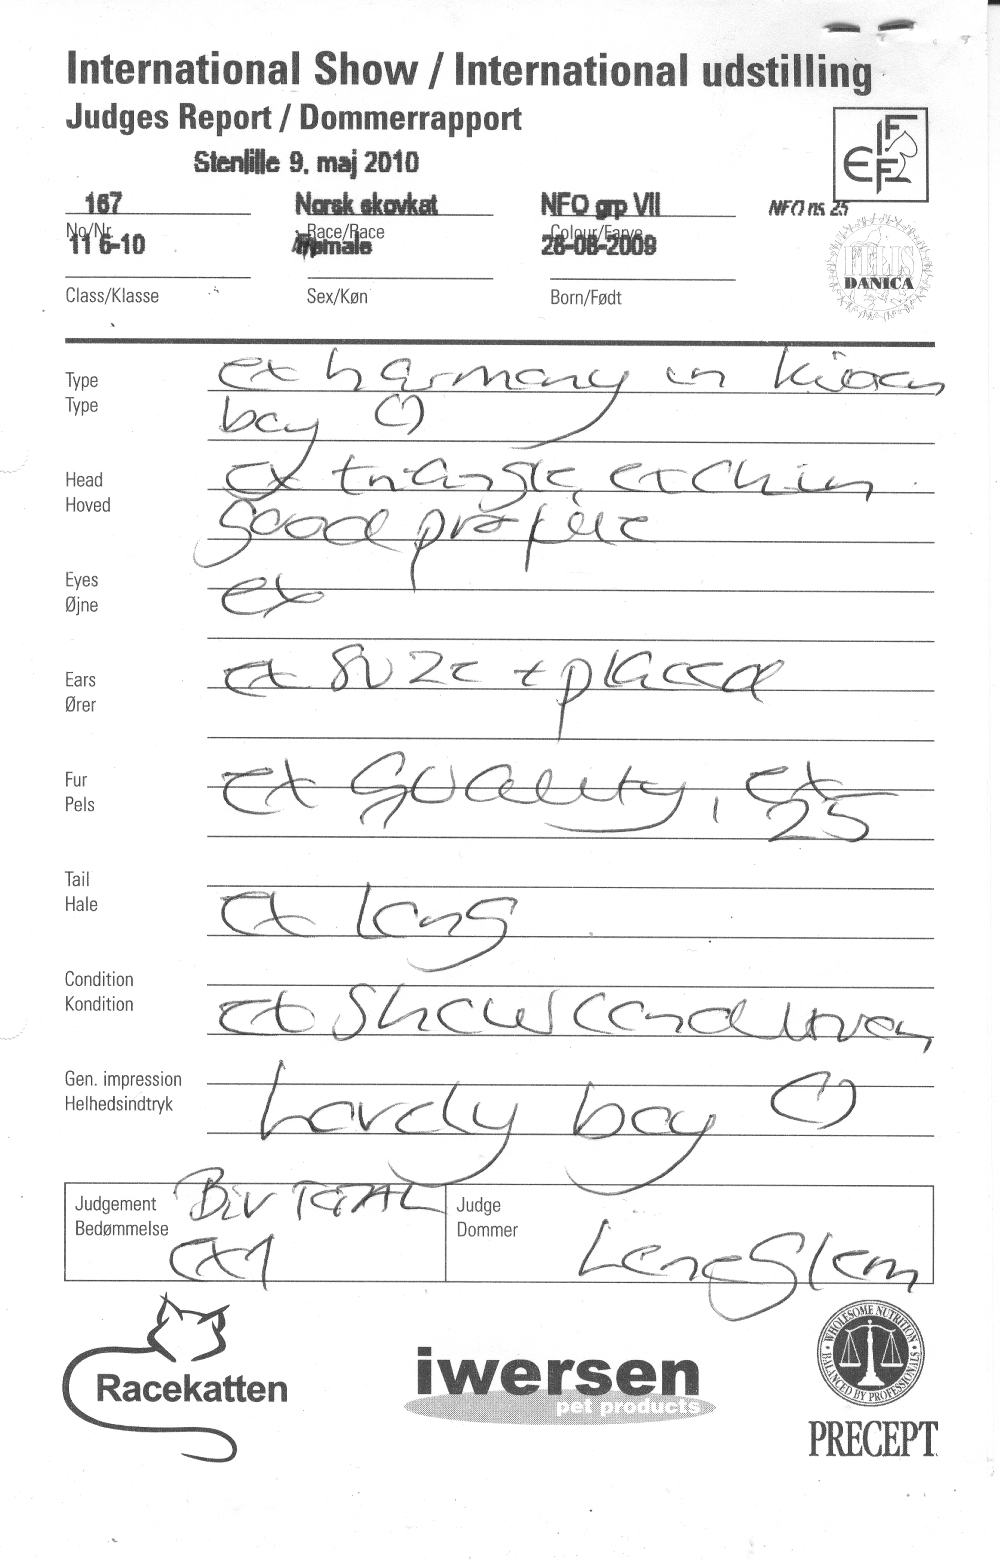 International Show / International udstilling
Judges Report / Dommerrapport
Stenlille 9. maj 2010
FIFE
167 Norsk skovkat NFO grp VII NFO ns 25
No/Nr. Race/Race Colour/Farve
11 6-10 male 28-08-2009
FELIS
DANICA
Class/Klasse Sex/Køn Born/Født
Type
Type
ex harmony in
boy
Head
Hoved
ex triangle, ex chin
good profile
Eyes
Øjne
ex
Ears
Ører
ex size + placed
Fur
Pels
ex quality, ex
25
Tail
Hale
ex long
Condition
Kondition
ex show condition
Gen. impression
Helhedsindtryk
Lovely boy
Judgement
Bedømmelse
BIV TOTAL
ex 1
Judge
Dommer
Racekatten
iwersen
pet products
WHOLESOME NUTRITION
BALANCED BY PROFESSIONALS
PRECEPT